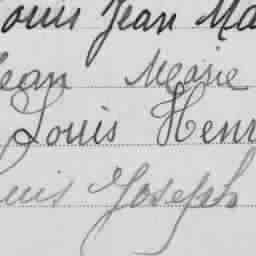 Louis Jean Ma
Jean Marie
Louis Henr
ouis Joseph